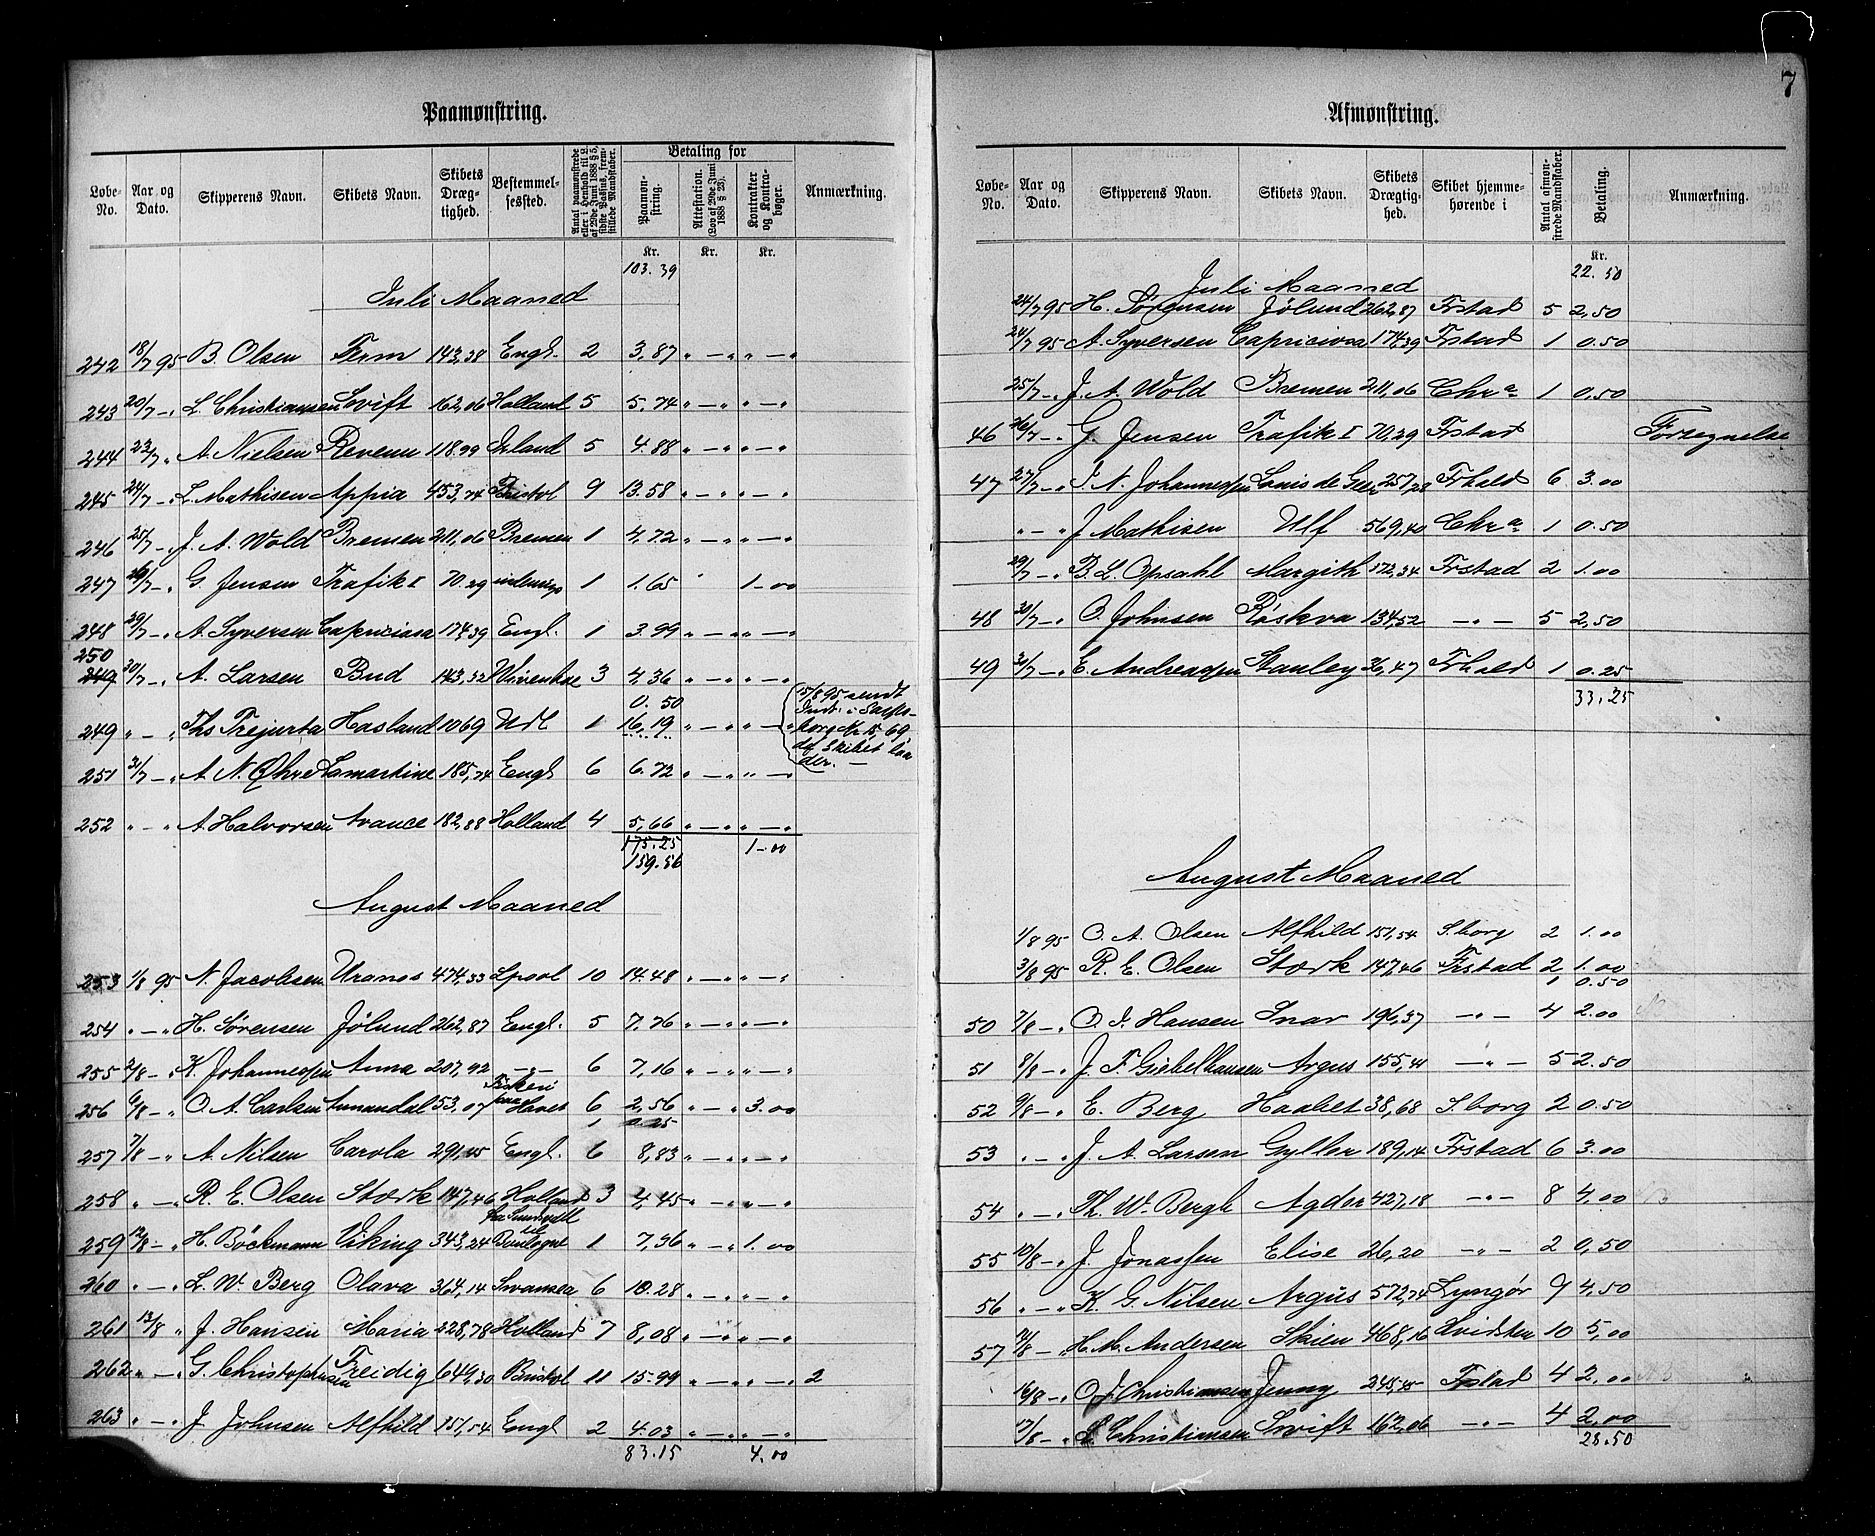 7
Paamønstring.
Løbe-No. | Aar og Dato. | Skipperens Navn. | Skibets Navn. | Skibets Dræg-tighed. | Bestemmel-sessted. | Antal paamønstrede eller i Henhold til L. af 29de Juni 1888 § 5, sidste Passus, frem-stillede Mandskaber. | Betaling for Paamøn-string. | Attestation. (Lov af 29de Juni 1888 § 23). | Kontrakter og Kontra-bøger. | Anmærkning.
Kr. Kr. Kr.
103.39
Juli Maaned
242 18/7 95 B. Olsen Ferm 143,38 Engl. 2 3,87 " — " " — "
243 20/7 — " L. Christiansen Svift 162,06 Holland 5 5.74 " — " " — "
244 23/7 " A. Nielsen Revenu 118.99 Irland 5 4.88 " — " " — "
245 24/7 — " L. Mathisen Appia 453,74 Bristol 9 13.58 " — " " — "
246 25/7 — " J. A. Wold Bremen 211,06 Bremen 1 4,72 " — " " — "
247 26/7 — " G. Jensen Trafik I 70.29 indenrigs 1 1.65 " 1-00
248 29/7 — " A. Syversen Capriciosa 174.39 Engl. 1 3.99 " — " " — "
250
249 30/7 — " A. Larsen Bud 143,32 Wivenhoe 3 4,36 " — " " — "
0.50
249 " — " Ths Trejurta Hasland 1069 Udl 1 16,19 " — " " — "
(15/8 95 sendt
Indt. i Sarps-
borg Kr 15,69,
da Skibet laa
der. —
251 31/7 — " A. N. Øhre Lamartine 185,74 Engl 6 6.72 " — " " — "
252 " — " A. Halvorsen Avance 182,88 Holland 4 5,66 " — " " — "
175.25 1-00
159.56
August Maaned
253 1/8 95 N. Jacobsen Uranos 474,33 Lpool 10 14.48 " — " " — "
254 " — " H. Sørensen Jølund 262,87 Engl. 5 7.76 " — " " — "
255 2/8 — " K. Johannessen Anna 207,92 — " — 6 7,16 " — " " — "
Fiskeri
256 6/8 — " O. A. Carlsen Annandal 53,07 paa Havet 6 2,56 " — " 3.00
1 0.25
257 7/8 — " A. Nilsen Carola 291,45 Engl. 6 8,83 " — " " — "
258 " — " R. E. Olsen Stærk 147,46 Holland 3 4,45 " — " " — "
fra Sundsvall
til
259 12/8 — " H. Böckmann Viking 343,24 Boulogne 1 7,36 " — " 1.00
260 " — " L. W. Berg Olava 364,14 Swansea 6 10.28 " — " " — "
261 13/8 " J. Hansen Maria 228,78 Holland 7 8,08 " — " " — "
262 " — " G. Christophersen Freidig 649,30 Bristol 11 15.99 " — " " — " 2
263 " — " J. Johnsen Alfhild 151,54 Engl 2 4.03 " — " " — "
83.15 4.00
Afmønstring.
Løbe-No. | Aar og Dato. | Skipperens Navn. | Skibets Navn. | Skibets Drægtig-hed. | Skibet hjemme-hørende i | Antal afmøn-strede Mandskaber. | Betaling. | Anmærkning.
Kr.
22.50
Juli Maaned
24/7 95 H. Sørensen Jølund 262,87 Frstad 5 2,50
24/7 95 A. Syversen Capriciosa 174,39 Frstad 1 0.50
25/7 — " J. A. Wold Bremen 211,06 Chra 1 0.50
46 26/7 — " G. Jensen Trafik I 70.29 Frstad Forsegnelse
47 27/7 — " J. N. Johannessen Louis de Geer 257,28 Frhald 6 3.00
" — " J Mathisen Ulf 569,40 Chra 1 0.50
29/7 — " B. L. Opsahl Margith 172,34 Frstad 2 1.00
48 30/7 — " O. Johnsen Røskva 134,52 — " — 5 2,50
49 31/7 — " E. Andreassen Stanley 26,47 Frhald 1 0.25
33.25
August Maaned
1/8 95 O. A. Olsen Alfhild 151,54 S.borg 2 1.00
3/8 95 R. E. Olsen Stærk 147,46 Frstad 2 1.00
1 0.50
50 7/8 — " O. J. Hansen Snar 196,37 — " — 4 2.00
51 8/8 — " J. F. Giebelhausen Argus 155,41 — " — 5 2.50
52 9/8 — " E. Berg Haabet 38,68 S.borg 2 0.50
53 " — " J. A. Larsen Gyller 189,14 Frstad 6 3.00
54 " — " Th. W. Bergh Agder 427,18 — " — 8 4,00
55 10/8 — " J. Jonassen Elise 26,20 — " — 2 0,50
56 " — " K. G. Nilsen Argus 572,74 Lyngør 9 4,50
57 12/8 — " H. M. Andersen Skien 468,16 Hvidsten 10 5,00
16/8 — " O. J. Christiansen Jenny 245,45 Frstad 4 2,00
17/8 — " L Christiansen Swift 162,06 — " — 4 2,00
28.50